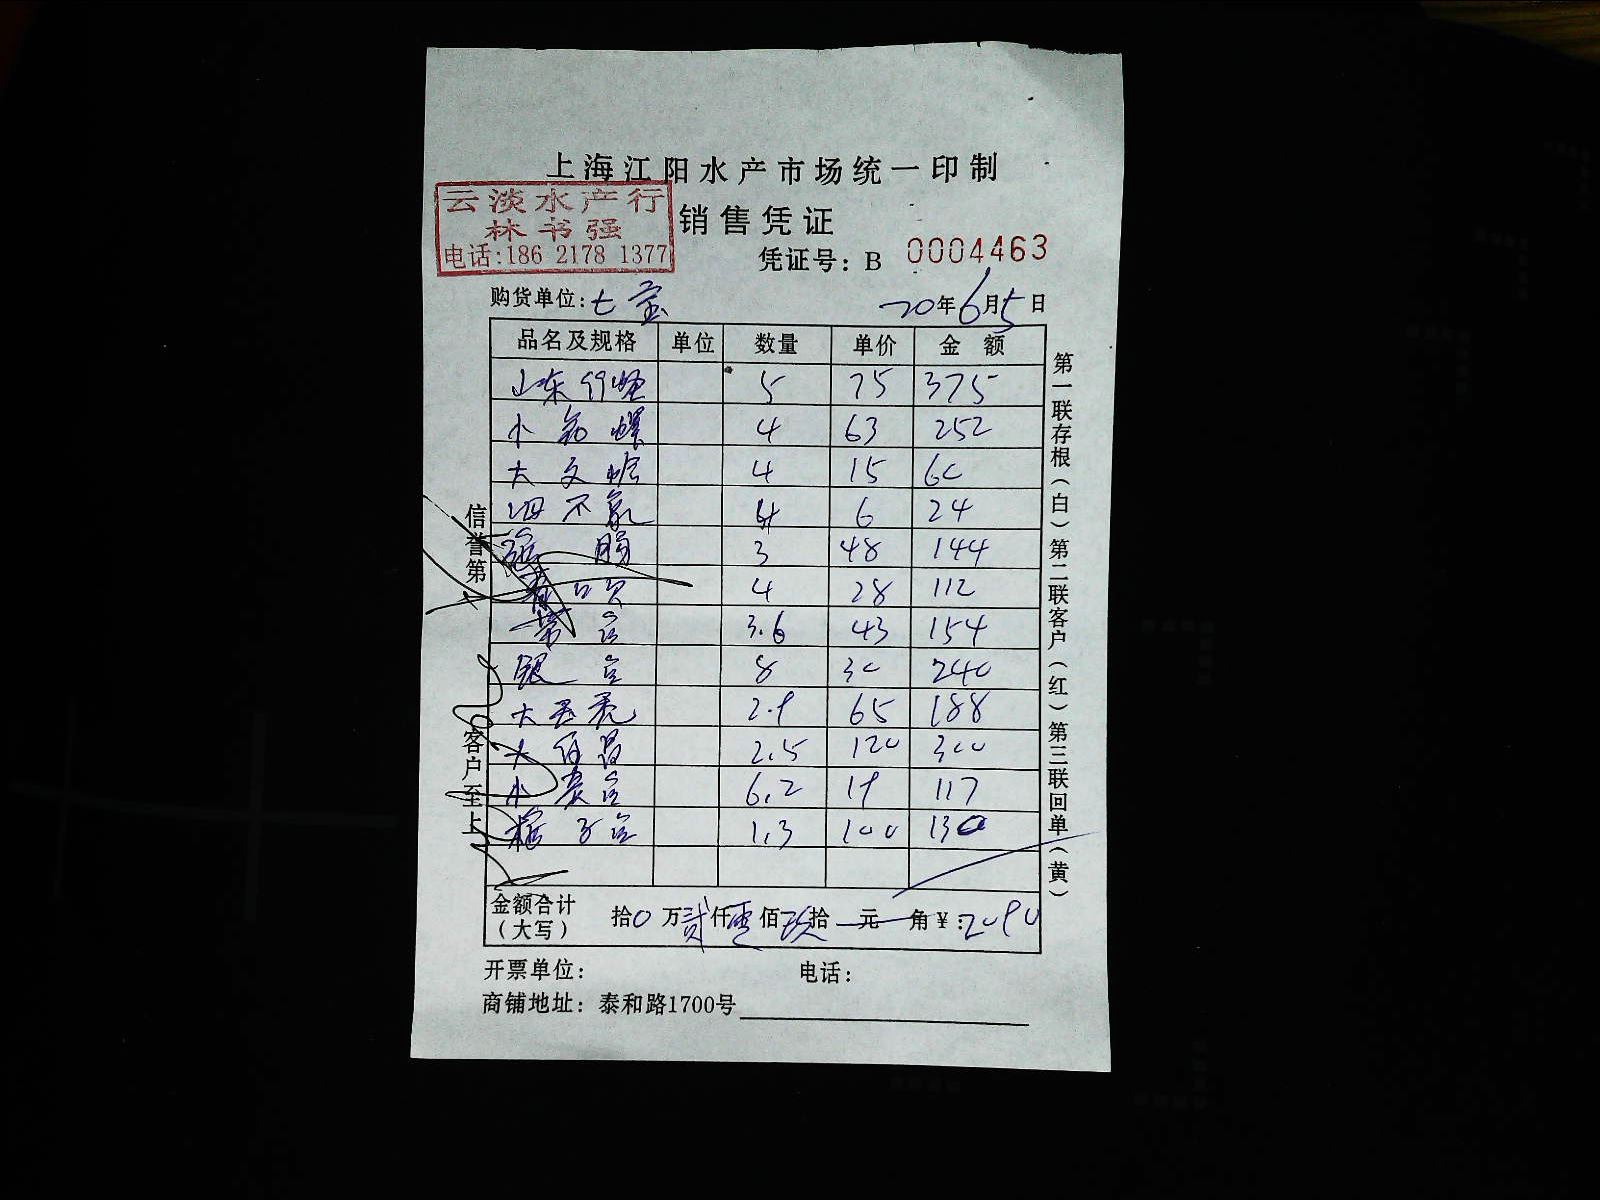 上海江阳水产市场统一印制
云淡水产行
林书强
电话:186 2178 1377
销售凭证
凭证号: B 0004463
购货单位: 七宝
20年6月5日
品名及规格 单位 数量 单价 金额
山东 5 75 375
小 螺 4 63 252
大文蛤 4 15 60
4 6 24
肠 3 48 144
春贝 4 28 112
3.6 43 154
银 8 30 240
大 2.9 65 188
大 2.5 120 300
小 6.2 19 117
1.3 100 130
金额合计
(大写)
拾0万贰仟零佰玖拾元角¥:2090
开票单位: 电话:
商铺地址: 泰和路1700号
信誉第
客户至上
第一联存根(白)第二联客户(红)第三联回单(黄)